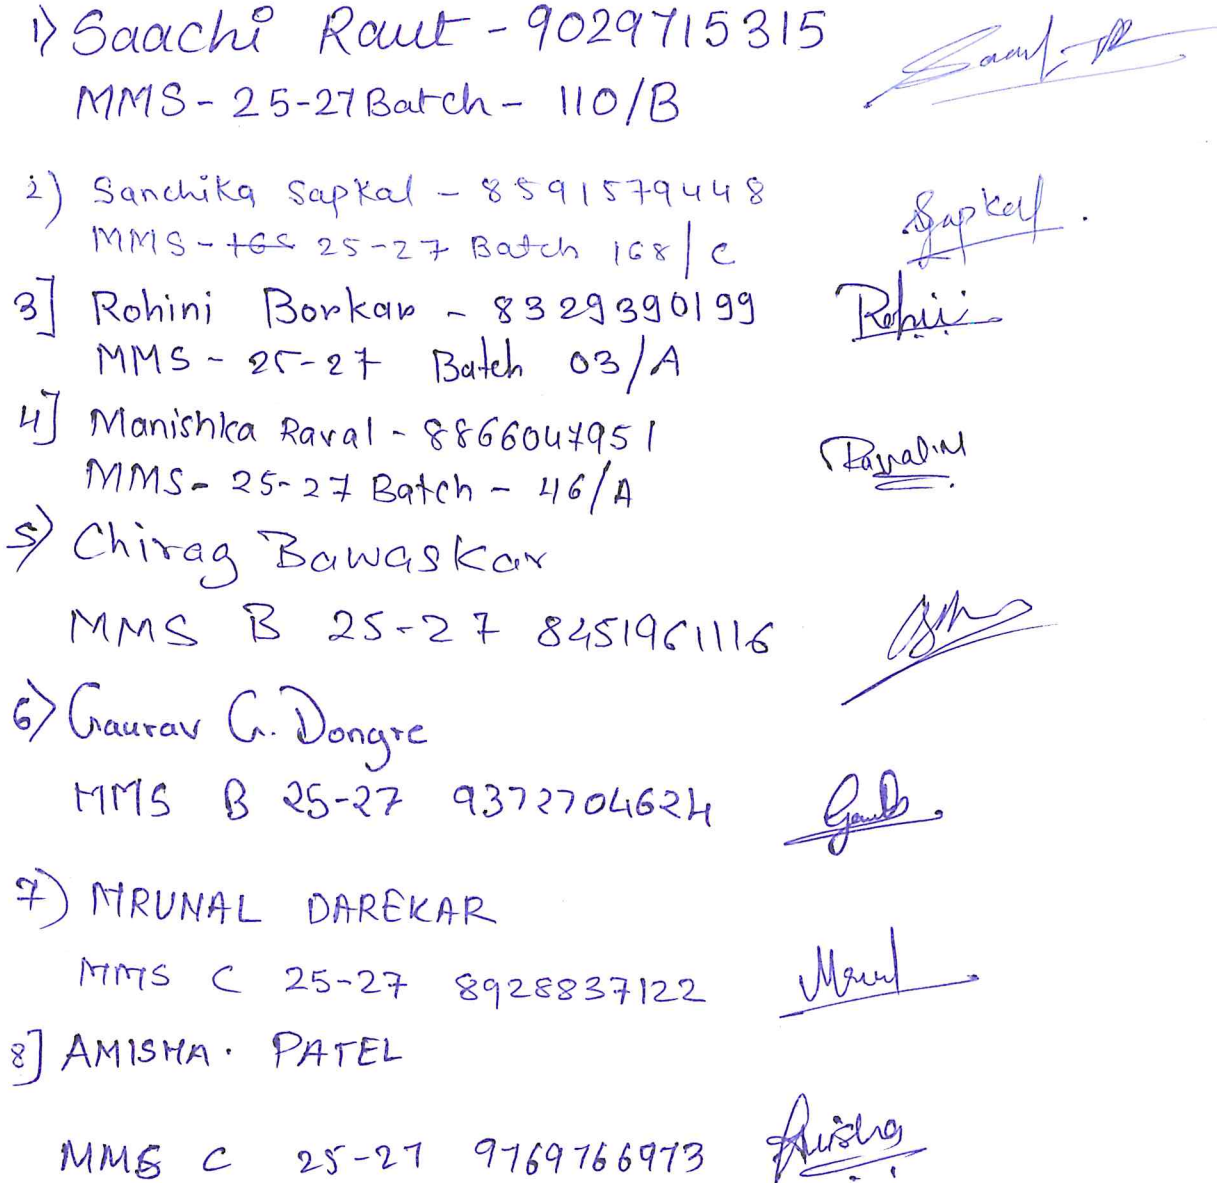 1) Saachi Raut - 9029715315
MMS - 25-27 Batch - 110/B
2) Sanchika Sapkal - 8591579448 Sapkal.
MMS - 25-27 Batch 168/C
3] Rohini Borkar - 8329390199 Rohini
MMS - 25-27 Batch 03/A
4] Manishka Raval - 8866047951 Raval.M
MMS - 25-27 Batch - 46/A
5) Chirag Bawaskar
MMS B 25-27 8451961116
6) Gaurav G. Dongre
MMS B 25-27 9372704624
7) MRUNAL DAREKAR
MMS C 25-27 8928837122
8] AMISHA. PATEL
MMS C 25-27 9769766973 Amisha